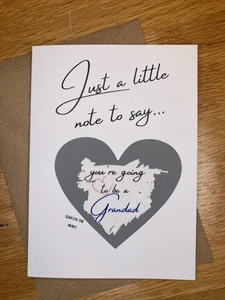 Just a little
note to say...
you're going
to be a
Grandad
SCRATCH THE
HEART